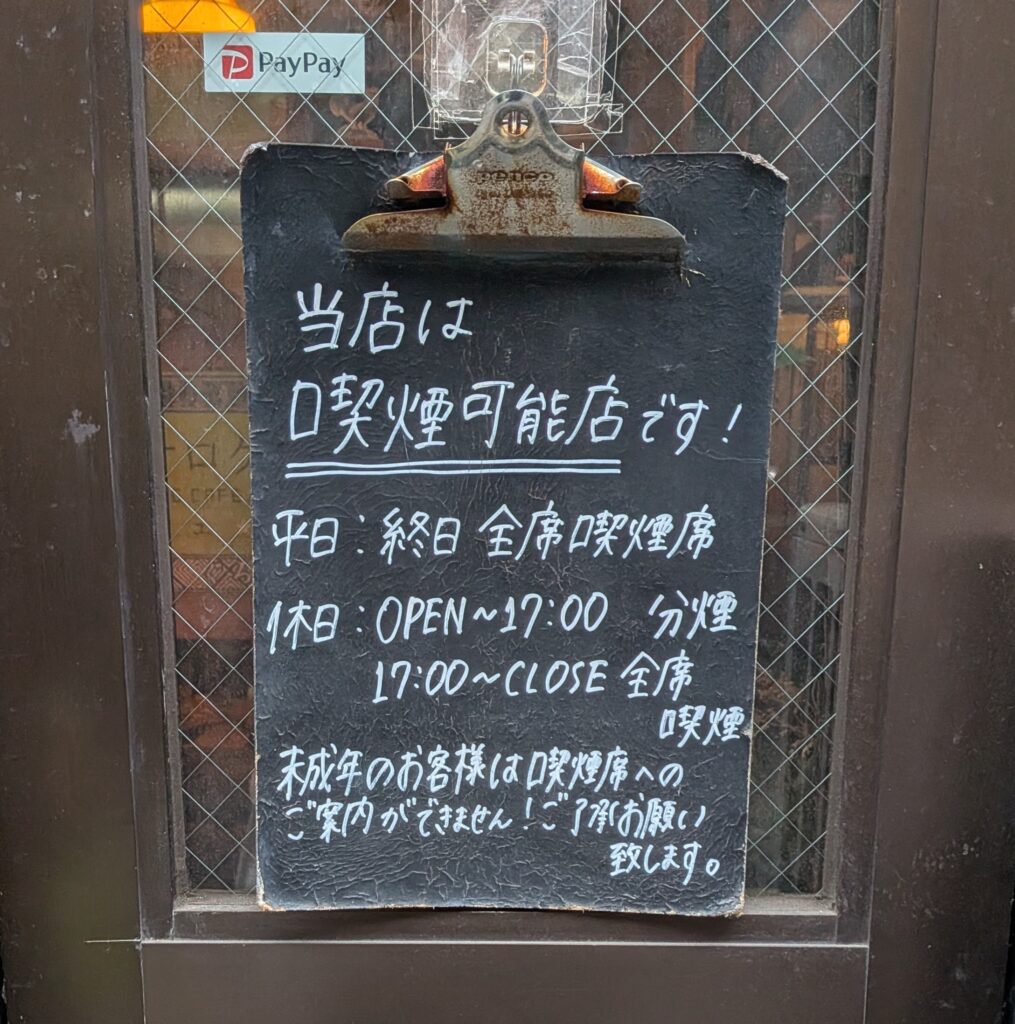 PayPay
petco
当店は
喫煙可能店です!
平日:終日 全席喫煙席
休日:OPEN~17:00 分煙
17:00~CLOSE 全席
喫煙
未成年のお客様は喫煙席への
ご案内ができません!ご了承お願い
致します。